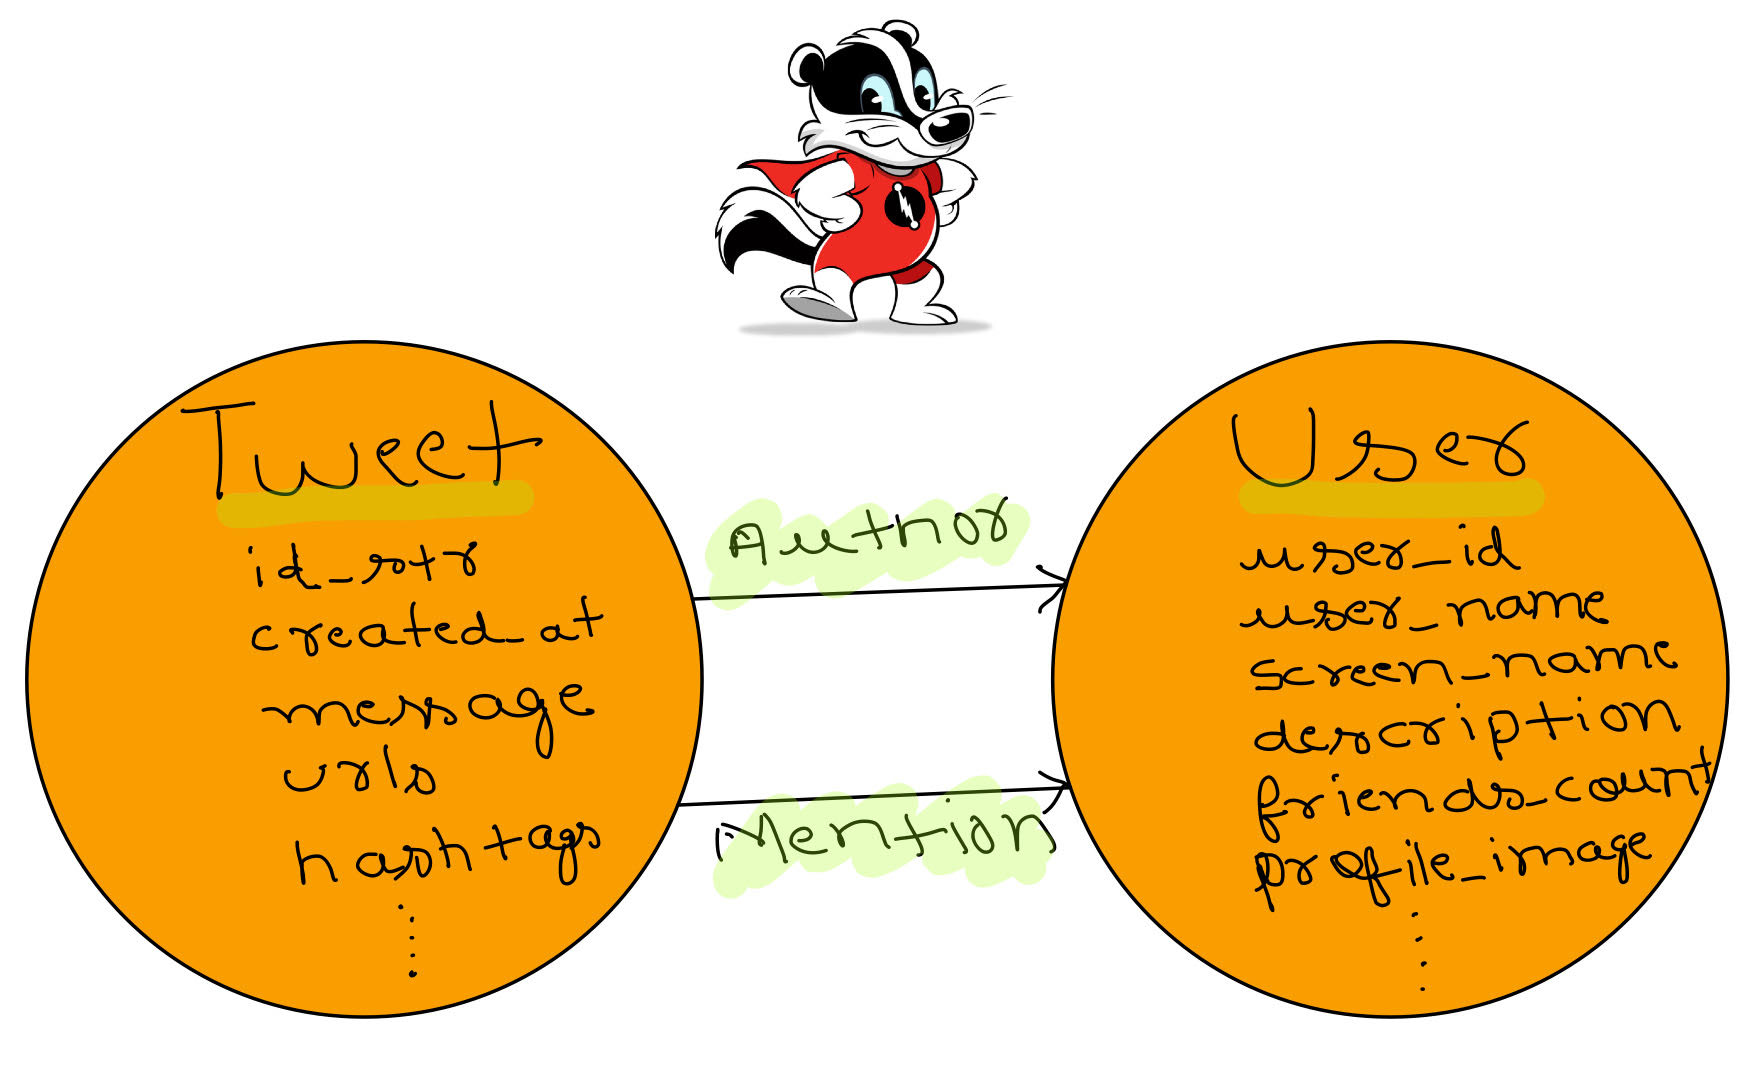 Tweet
id_str
created_at
message
urls
hashtags
Author
Mention
User
user_id
user_name
screen_name
description
friends_count
profile_image